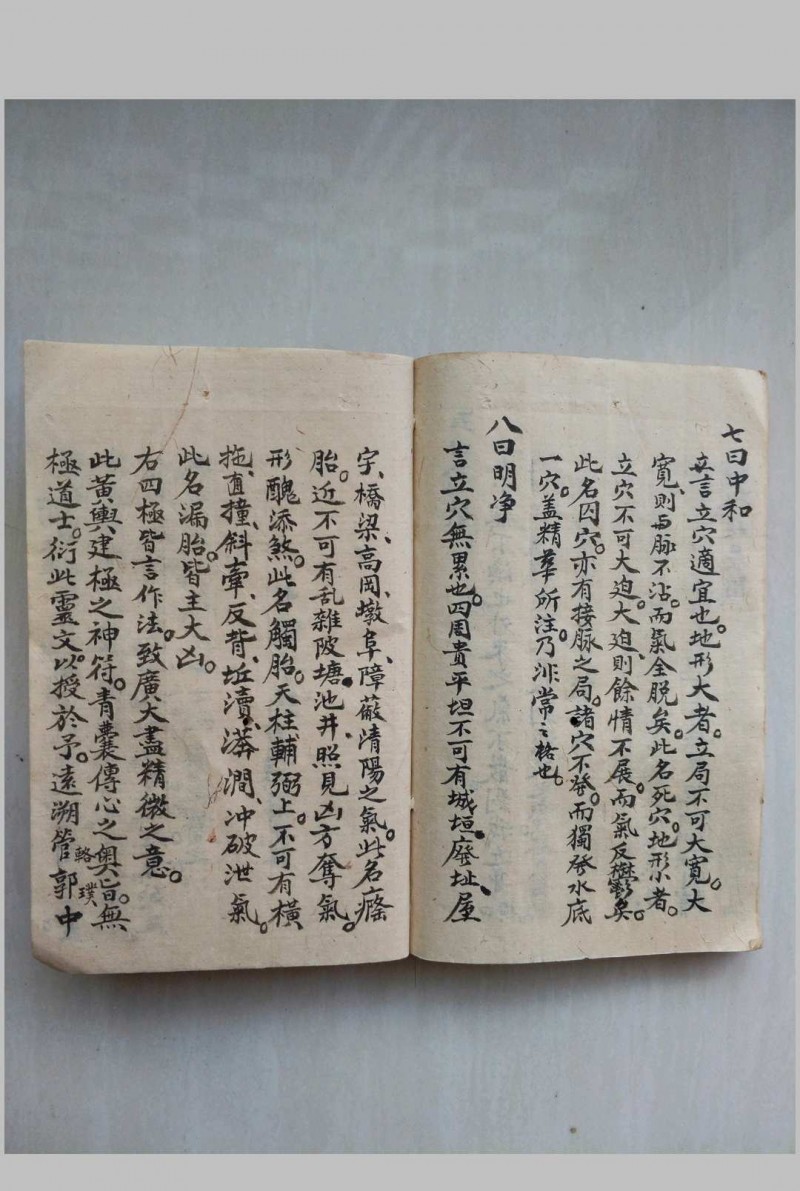 七曰中和
言立穴適宜也。地形大者。立局不可大寬。大
寬、則与脉不沾。而氣全脱矣。此名死穴。地形小者。
立穴不可大迫。大迫、則餘情不展。而氣反鬱矣。
此名囚穴。亦有接脉之局。諸穴不發。而獨發水底
一穴。盖精華所注。乃非常之格也。
八曰明净
言立穴無累也。四周貴平坦不可有城垣、廢址、屋
宇、橋梁、高岡、墩阜、障蔽清陽之氣。此名癃
胎。近不可有乱雜陂塘、池井、照見凶方奪氣。
形醜添煞。此名觸胎。天柱輔弼上。不可有橫
拖、直撞、斜牽、反背、坵瀆、溝澗、冲破泄氣。
此名漏胎。皆主大凶。
右四極皆言作法。致廣大盡精微之意。
此黃輿建極之神符。青囊傳心之奧旨。無
極道士。衍此靈文。以授於予。遠溯管輅郭璞中